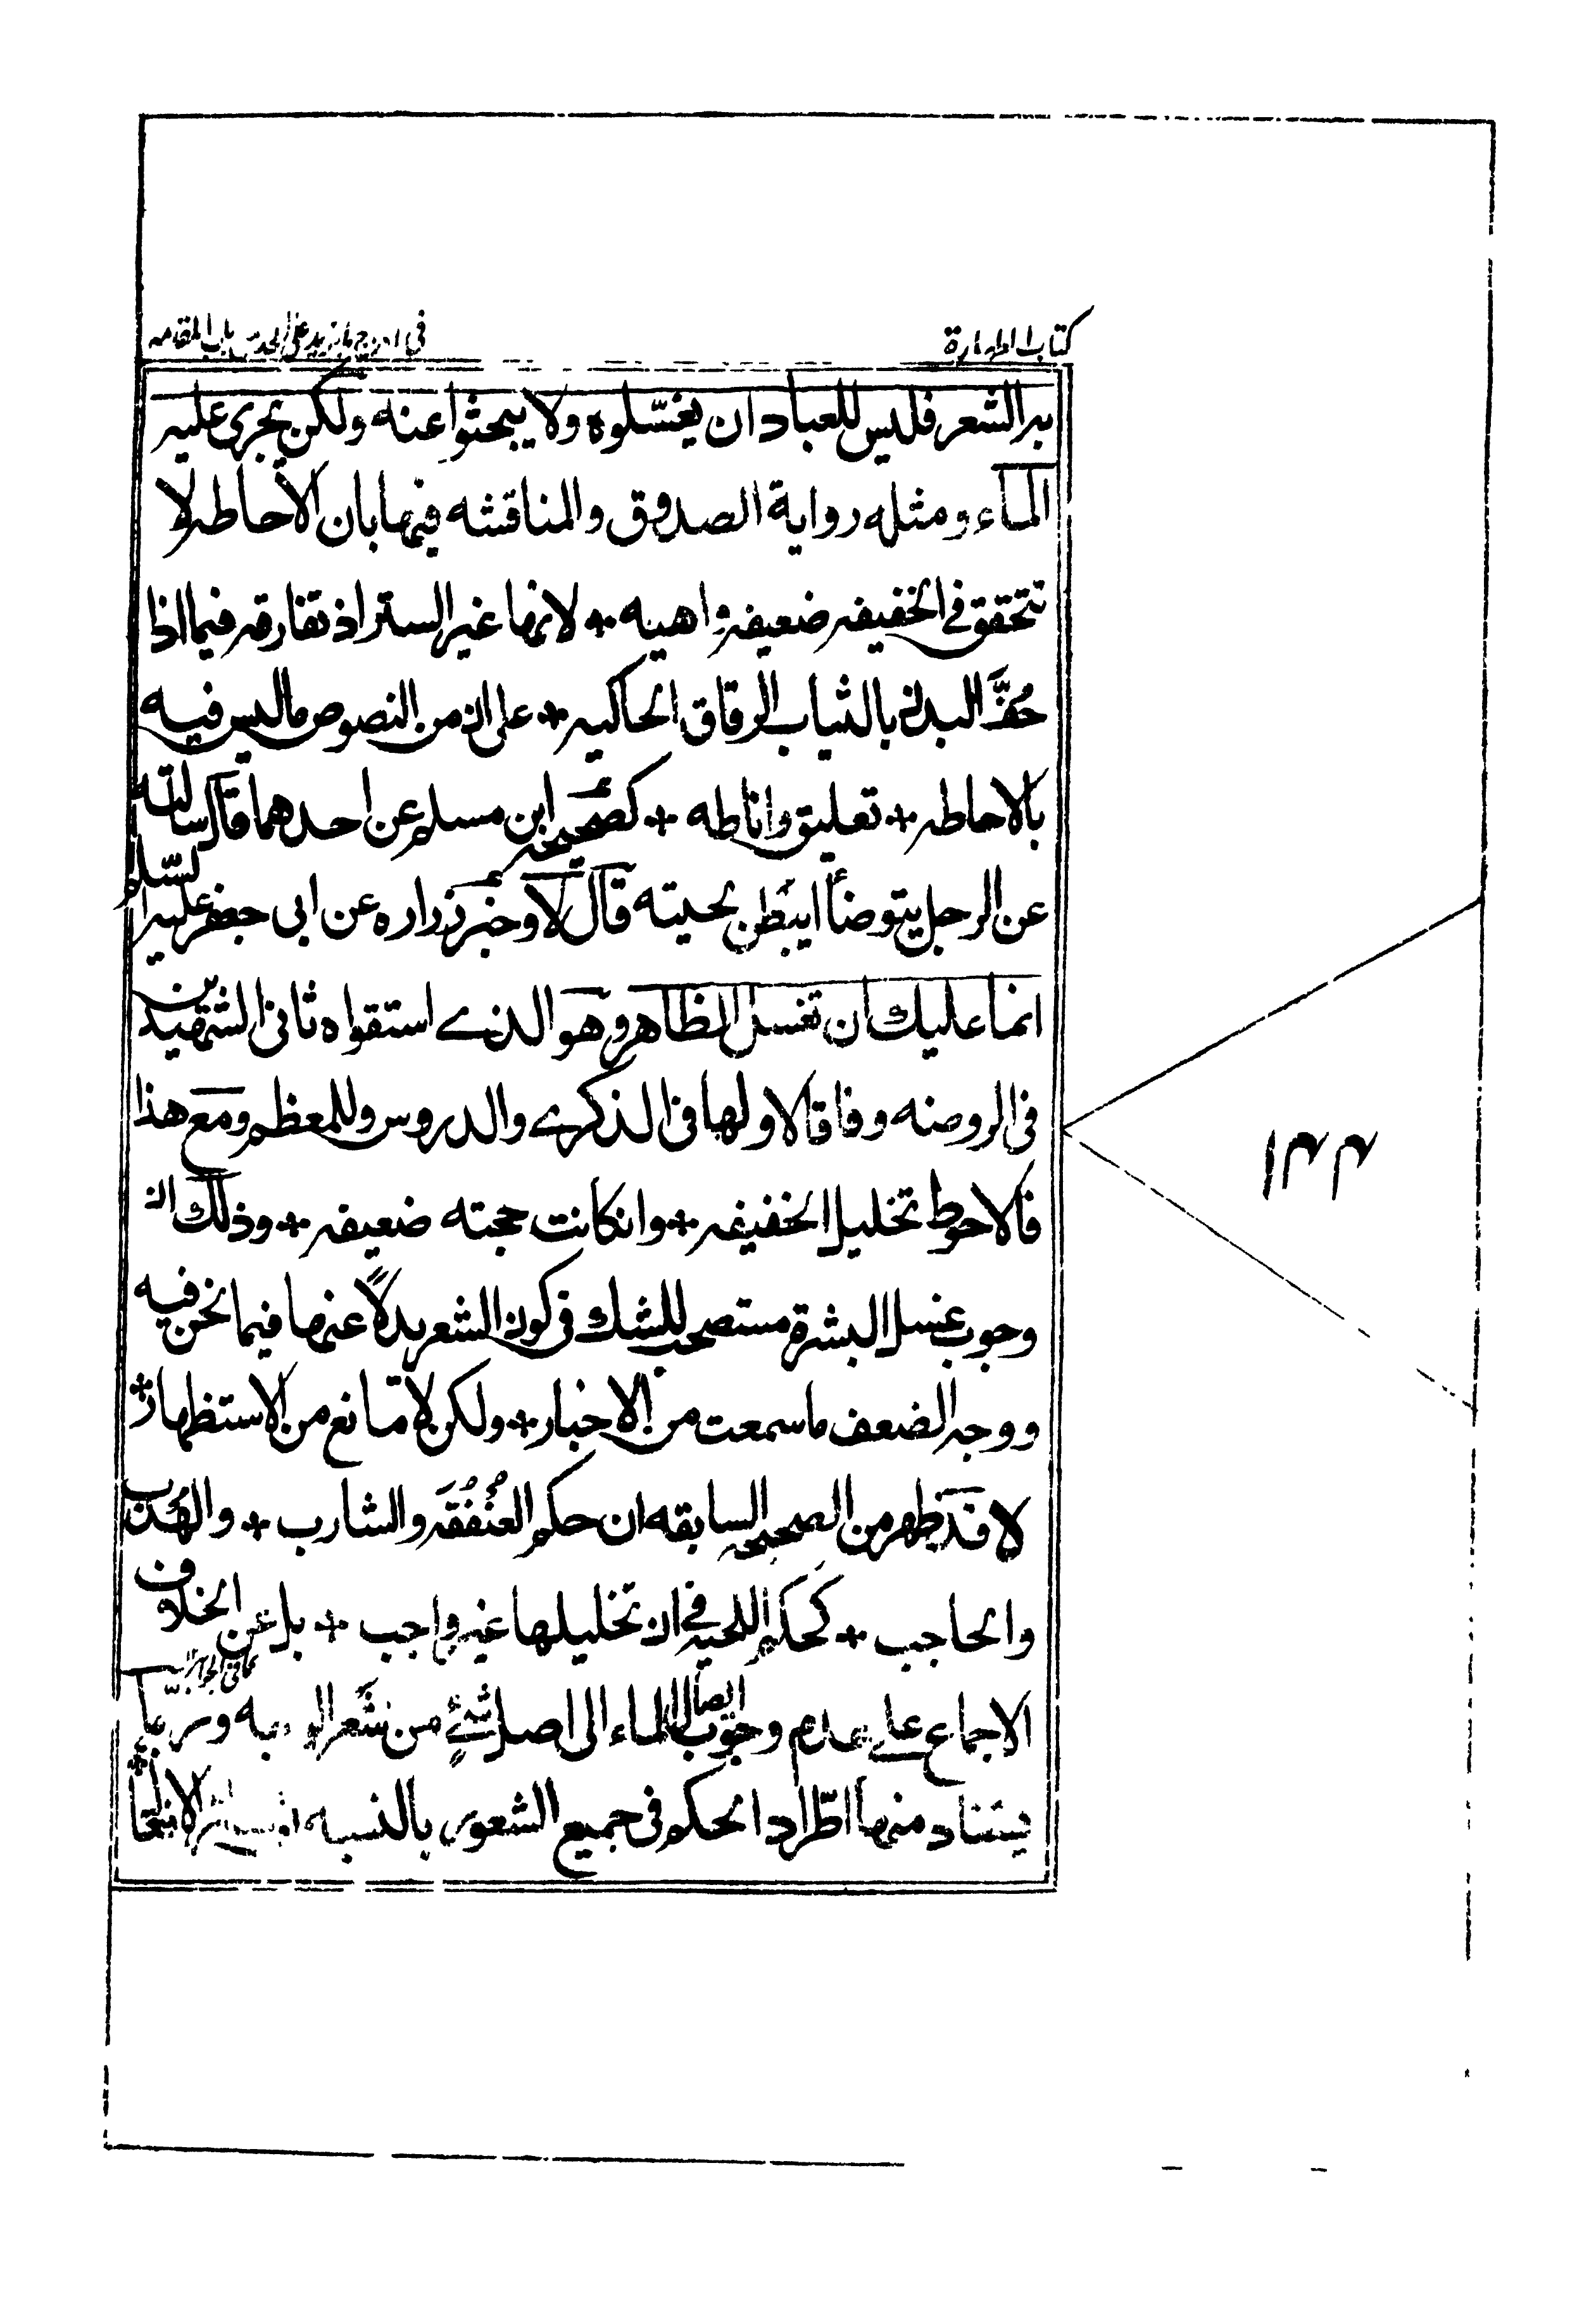 كتاب الطهارة
به الشعر فليس للعباد ان يغسّلوه ولا يبحثوا عنه ولكن يجرى عليه
المآء ومثله رواية الصدوق والمناقشه فيها بان الاحاطه لا
تتحقق فى الخفيفه ضعيفه واهيه * لانها غير الستر اذ تفارقه فيما اذا
حُفَّ البدن بالثياب الرقاق الحاكيه * على ان من النصوص ما ليس فيه
بالاحاطه * تعليق واناطه * كصحيحه ابن مسلم عن احدهما قال سالته
عن الرجل يتوضأ ايبطن لحيته قال لا وخبر زراره عن ابى جعفر عليه السّلم
انما عليك ان تغسل الظاهر وهو الذے استقواه ثانى الشهيدين
فى الروضه وفاقا لاولهما فى الذكرے والدروس وللمعظم ومع هذا
فالاحوط تخليل الخفيفه * وانكانت حجته ضعيفه * وذلك ان
وجوب غسل البشرة مستصحب للشك فى كون الشعر بدلاً عنها فيما نحن فيه
ووجه الضعف ما سمعت من الاخبار * ولكن لا مانع من الاستظهار *
لا قد ظهر من الصحيحه السابقه ان حكم العنفقه والشارب * والهُدب
والحاجب * كحكم اللحيه فى ان تخليلها غير واجب * بل عن الخلاف
الاجماع على عدم وجوب ايصال الماء الى اصل شئ من شعر الوجه وربما
يستفاد منها اطّراد الحكم فى جميع الشعور بالنسبه
١٣٣